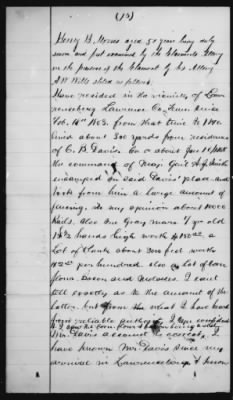 (15)
Henry B. Morus aged 50 years being duly
sworn and first examined by the Claimants Attorney
in the presence of the Claimant by his Attorney
A W Wills stated as follows:
Have resided in the vicinity of
Lawrence Co, Tenn since
Feb. 1853. from that time to
lived about 300 yards from residence
of C. B. Davis. On or about Jan
the command of A. J. Smith
encamped on said Davis' place and
took from him a large amount of
fencing. In my opinion about 10000
Rails. Also One Gray mare 7 yr old
15½ hands high worth
Lot of Plank about 300 feet worth
per hundred. also a lot of corn
flour Bacon and Molasses. I can't
tell exactly as to the amount of the
latter. but from the what I have heard
from reliable authority I feel confident
Mr. Davis account is correct,
have known Mr. Davis since my
arrival in Lawrenceburg, I know